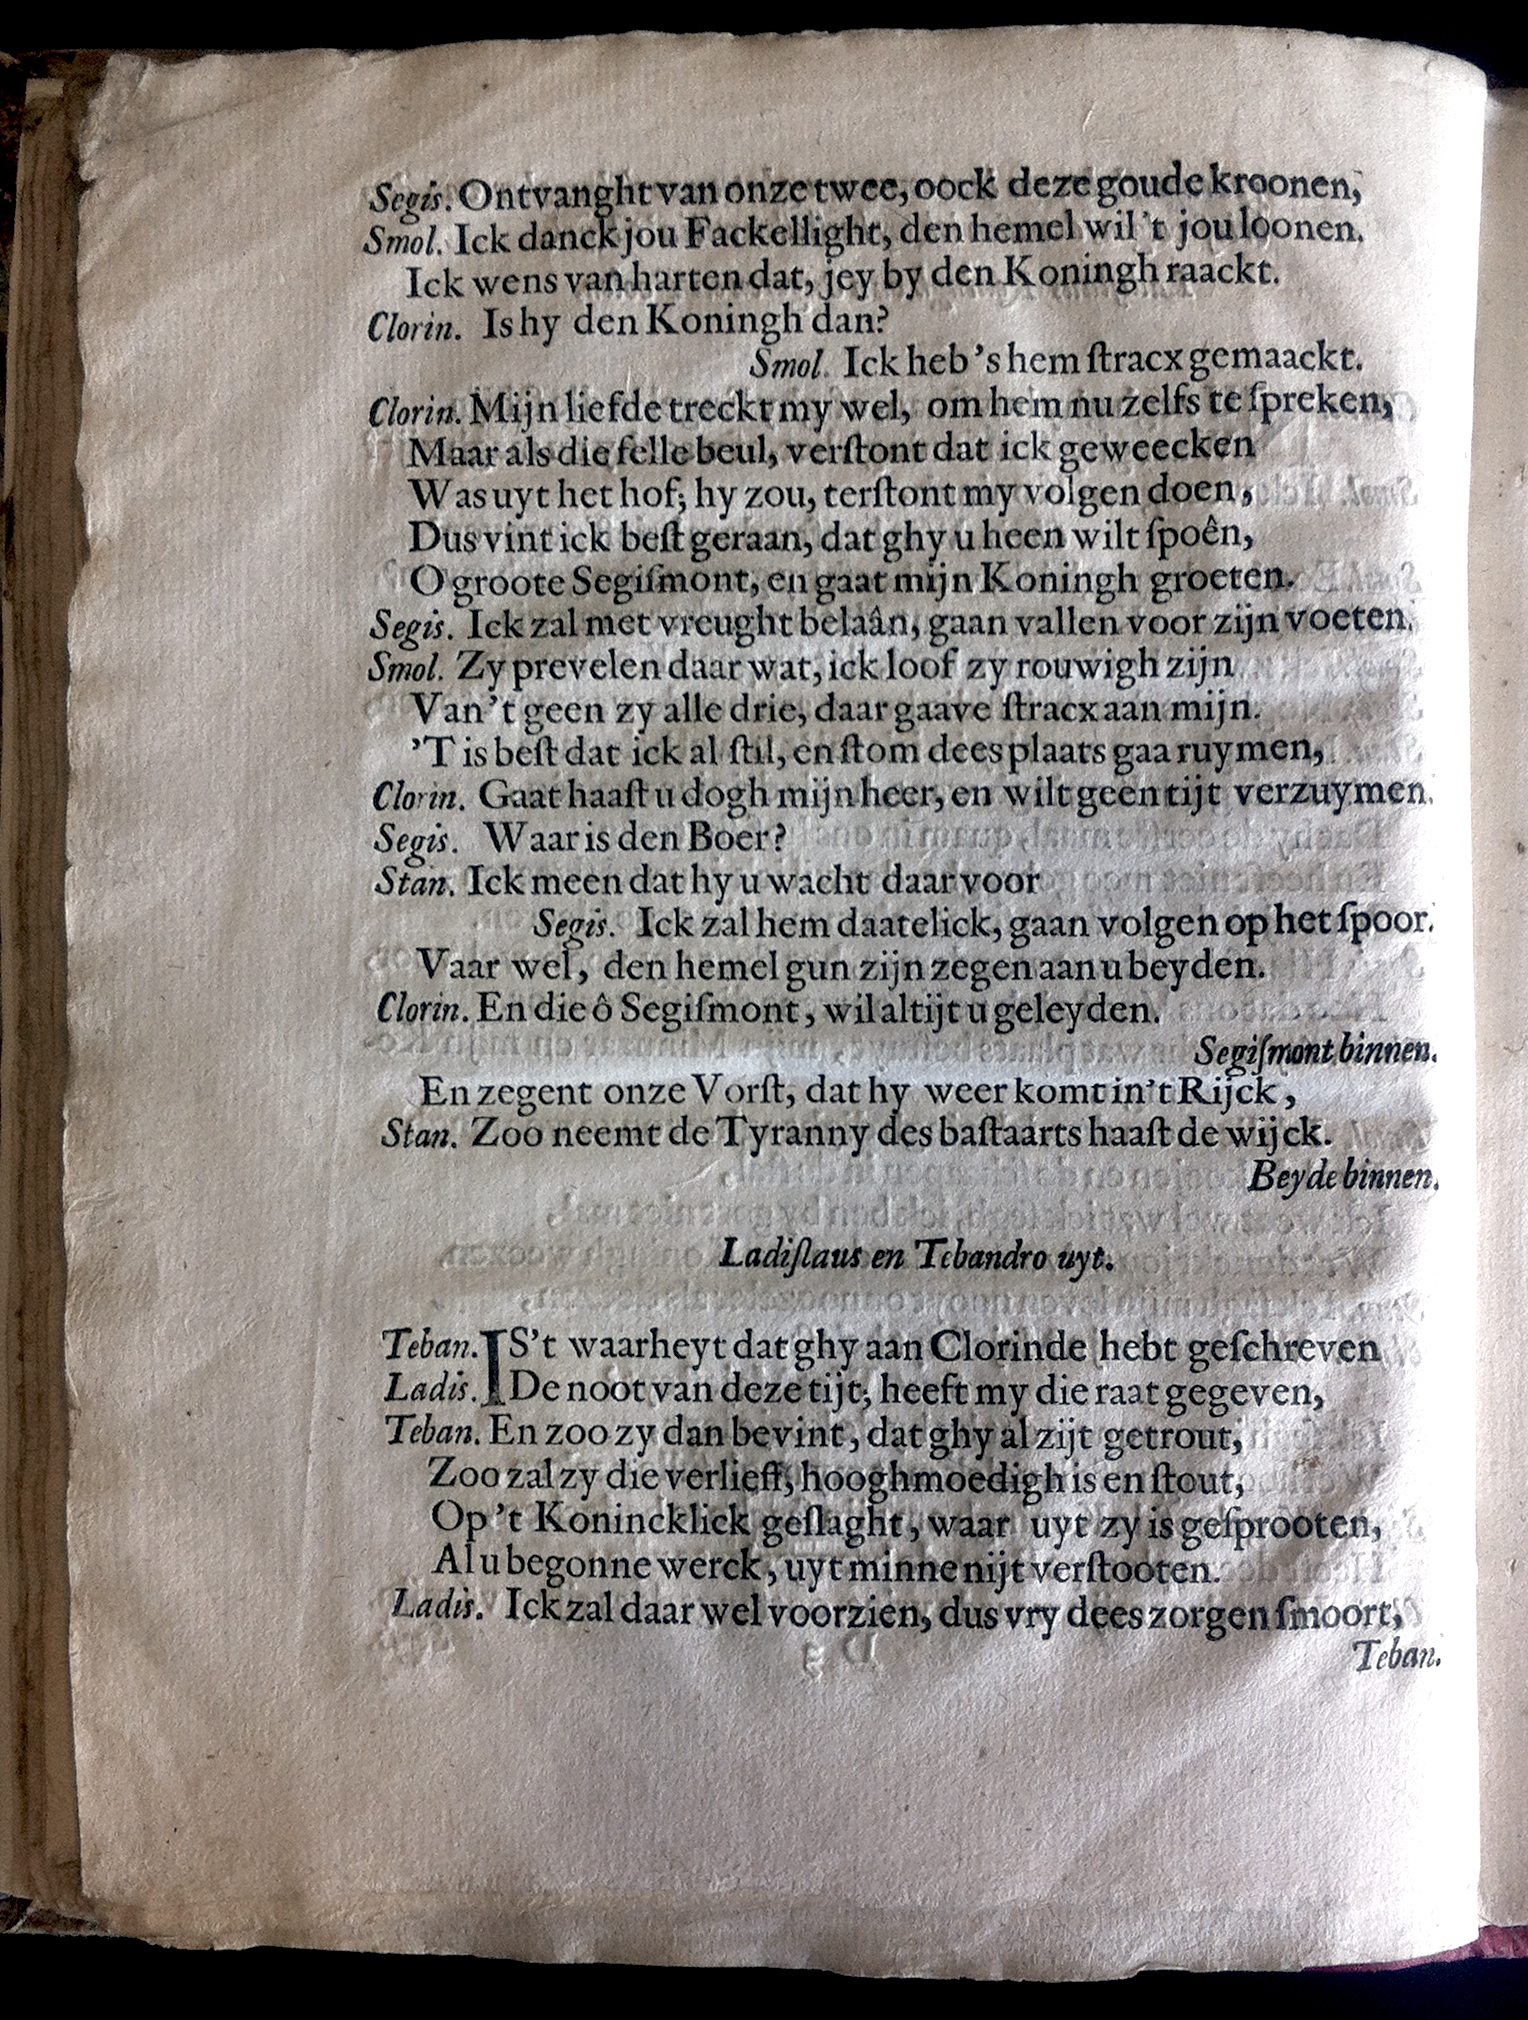 Segis. Ontvanght van onze twee, oock deze goude kroonen,
Smol. Ick danck jou Fackellight, den hemel wil 't jou loonen.
Ick wens van harten dat, jey by den Koningh raackt.
Clorin. Is hy den Koningh dan?
Smol. Ick heb 's hem ſtracx gemaackt.
Clorin. Mijn liefde treckt my wel, om hem nu zelfs te ſpreken,
Maar als die felle beul, verſtont dat ick geweecken
Was uyt het hof; hy zou, terſtont my volgen doen,
Dus vint ick beſt geraan, dat ghy u heen wilt ſpoên,
O groote Segiſmont, en gaat mijn Koningh groeten.
Segis. Ick zal met vreught belaân, gaan vallen voor zijn voeten.
Smol. Zy prevelen daar wat, ick loof zy rouwigh zijn
Van 't geen zy alle drie, daar gaave ſtracx aan mijn.
'T is beſt dat ick al ſtil, en ſtom dees plaats gaa ruymen,
Clorin. Gaat haaſt u dogh mijn heer, en wilt geen tijt verzuymen.
Segis. Waar is den Boer?
Stan. Ick meen dat hy u wacht daar voor
Segis. Ick zal hem daatelick, gaan volgen op het ſpoor.
Vaar wel, den hemel gun zijn zegen aan u beyden.
Clorin. En die ô Segiſmont, wil altijt u geleyden.
Segiſmont binnen.
En zegent onze Vorſt, dat hy weer komt in 't Rijck,
Stan. Zoo neemt de Tyranny des baſtaarts haaſt de wijck.
Beyde binnen.
Ladiſlaus en Tebandro uyt.
Teban. IS't waarheyt dat ghy aan Clorinde hebt geſchreven
Ladis. De noot van deze tijt; heeft my die raat gegeven,
Teban. En zoo zy dan bevint, dat ghy al zijt getrout,
Zoo zal zy die verlieff, hooghmoedigh is en ſtout,
Op 't Konincklick geſlaght, waar uyt zy is geſprooten,
Al u begonne werck, uyt minnenijt verſtooten.
Ladis. Ick zal daar wel voorzien, dus vry dees zorgen ſmoort,
Teban.